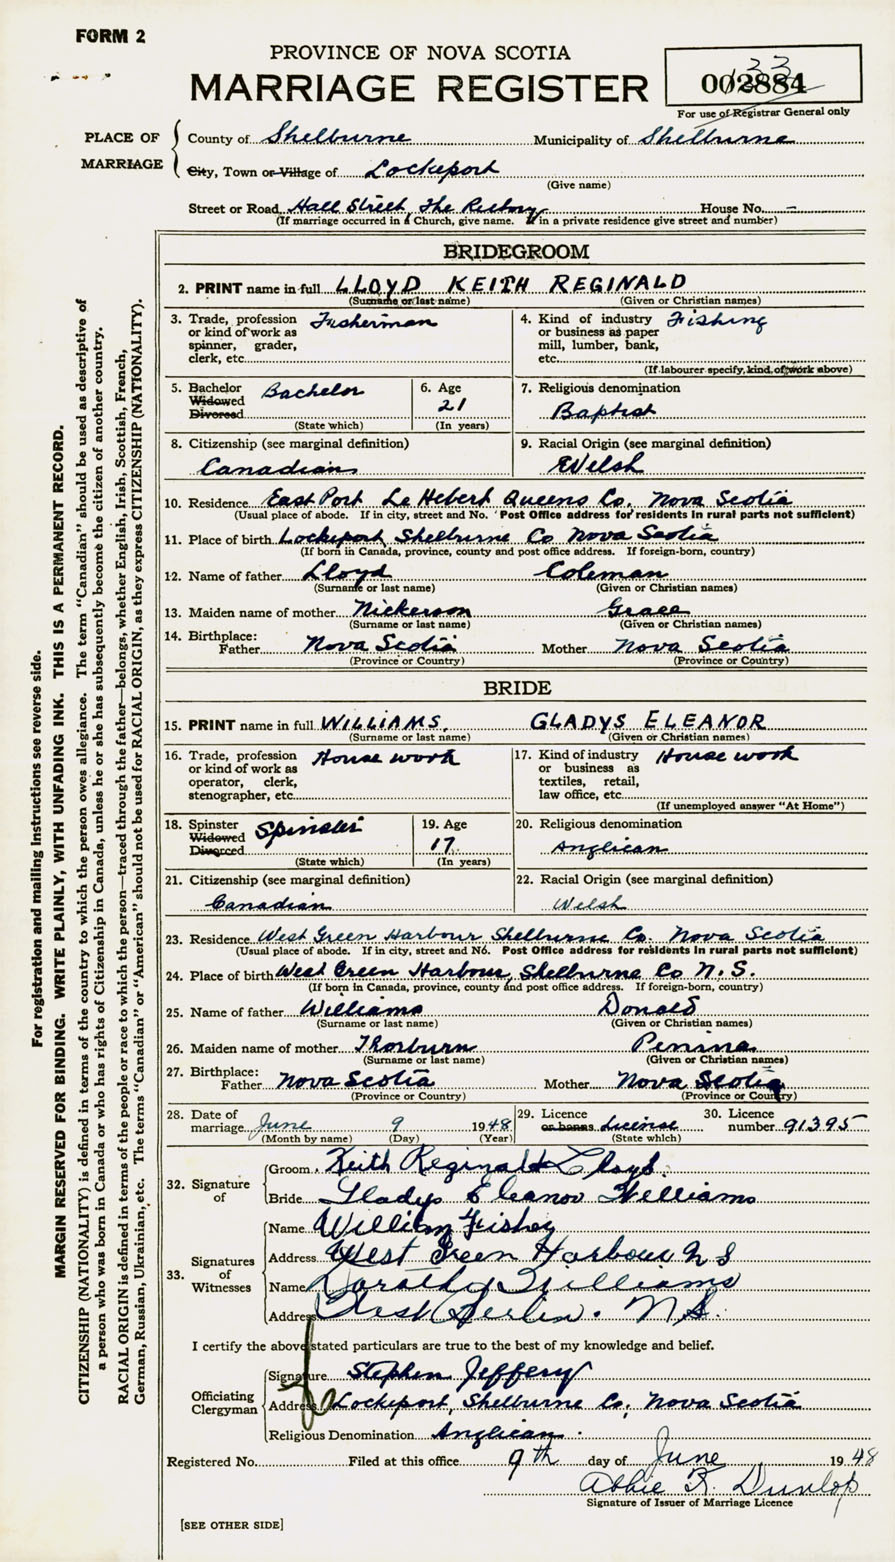 FORM 2
PROVINCE OF NOVA SCOTIA
MARRIAGE REGISTER
002884
33
For use of Registrar General only
PLACE OF MARRIAGE
County of Shelburne Municipality of Shelburne
City, Town or Village of Lockeport
(Give name)
Street or Road Hall Street, The Rectory House No. -
(If marriage occurred in a Church, give name. If in a private residence give street and number)
BRIDEGROOM
2. PRINT name in full LLOYD KEITH REGINALD
(Surname or last name) (Given or Christian names)
3. Trade, profession or kind of work as spinner, grader, clerk, etc. Fisherman
4. Kind of industry or business as paper mill, lumber, bank, etc. Fishing
(If labourer specify, kind of work above)
5. Bachelor Widowed Divorced Bachelor
(State which)
6. Age 21
(In years)
7. Religious denomination Baptist
8. Citizenship (see marginal definition) Canadian
9. Racial Origin (see marginal definition) Welsh
10. Residence East Port Le Hebert Queens Co. Nova Scotia
(Usual place of abode. If in city, street and No. Post Office address for residents in rural parts not sufficient)
11. Place of birth Lockeport, Shelburne Co Nova Scotia
(If born in Canada, province, county and post office address. If foreign-born, country)
12. Name of father Lloyd Coleman
(Surname or last name) (Given or Christian names)
13. Maiden name of mother Nickerson Grace
(Surname or last name) (Given or Christian names)
14. Birthplace: Father Nova Scotia Mother Nova Scotia
(Province or Country) (Province or Country)
BRIDE
15. PRINT name in full WILLIAMS, GLADYS ELEANOR
(Surname or last name) (Given or Christian names)
16. Trade, profession or kind of work as operator, clerk, stenographer, etc. House work
17. Kind of industry or business as textiles, retail, law office, etc. House work
(If unemployed answer "At Home")
18. Spinster Widowed Divorced Spinster
(State which)
19. Age 17
(In years)
20. Religious denomination Anglican
21. Citizenship (see marginal definition) Canadian
22. Racial Origin (see marginal definition) Welsh
23. Residence West Green Harbour Shelburne Co. Nova Scotia
(Usual place of abode. If in city, street and No. Post Office address for residents in rural parts not sufficient)
24. Place of birth West Green Harbour, Shelburne Co N.S.
(If born in Canada, province, county and post office address. If foreign-born, country)
25. Name of father Williams Donald
(Surname or last name) (Given or Christian names)
26. Maiden name of mother Thorburn Penina
(Surname or last name) (Given or Christian names)
27. Birthplace: Father Nova Scotia Mother Nova Scotia
(Province or Country) (Province or Country)
28. Date of marriage June 9 1948
(Month by name) (Day) (Year)
29. Licence or banns License
(State which)
30. Licence number 91395
32. Signature of
Groom Keith Reginald Lloyd.
Bride Gladys Eleanor Williams
33. Signatures of Witnesses
Name William Fisher
Address West Green Harbour N S
Name Dorothy Williams
Address West Berlin. N.S.
I certify the above stated particulars are true to the best of my knowledge and belief.
Officiating Clergyman
Signature Stephen Jeffery
Address Lockeport, Shelburne Co, Nova Scotia
Religious Denomination Anglican.
Registered No. Filed at this office 9th day of June 1948
Abbie R. Dunlop
Signature of Issuer of Marriage Licence
[SEE OTHER SIDE]
For registration and mailing instructions see reverse side.
MARGIN RESERVED FOR BINDING. WRITE PLAINLY, WITH UNFADING INK. THIS IS A PERMANENT RECORD.
CITIZENSHIP (NATIONALITY) is defined in terms of the country to which the person owes allegiance. The term "Canadian" should be used as descriptive of
a person who was born in Canada or who has rights of Citizenship in Canada, unless he or she has subsequently become the citizen of another country.
RACIAL ORIGIN is defined in terms of the people or race to which the person—traced through the father—belongs, whether English, Irish, Scottish, French,
German, Russian, Ukrainian, etc. The terms "Canadian" or "American" should not be used for RACIAL ORIGIN, as they express CITIZENSHIP (NATIONALITY).